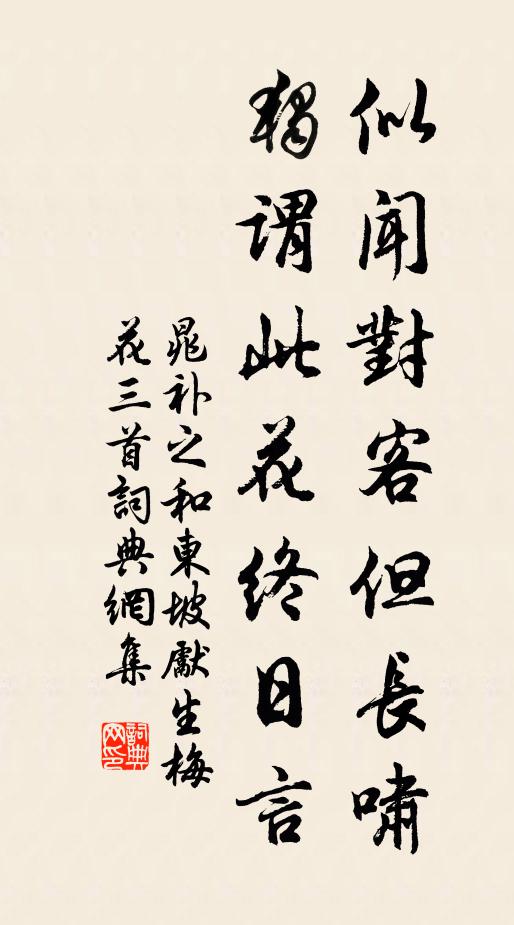 似聞對客但長嘯
獨謂此花終日言
晁补之和東坡獻生梅
花三首詞典網集
詞典
网印